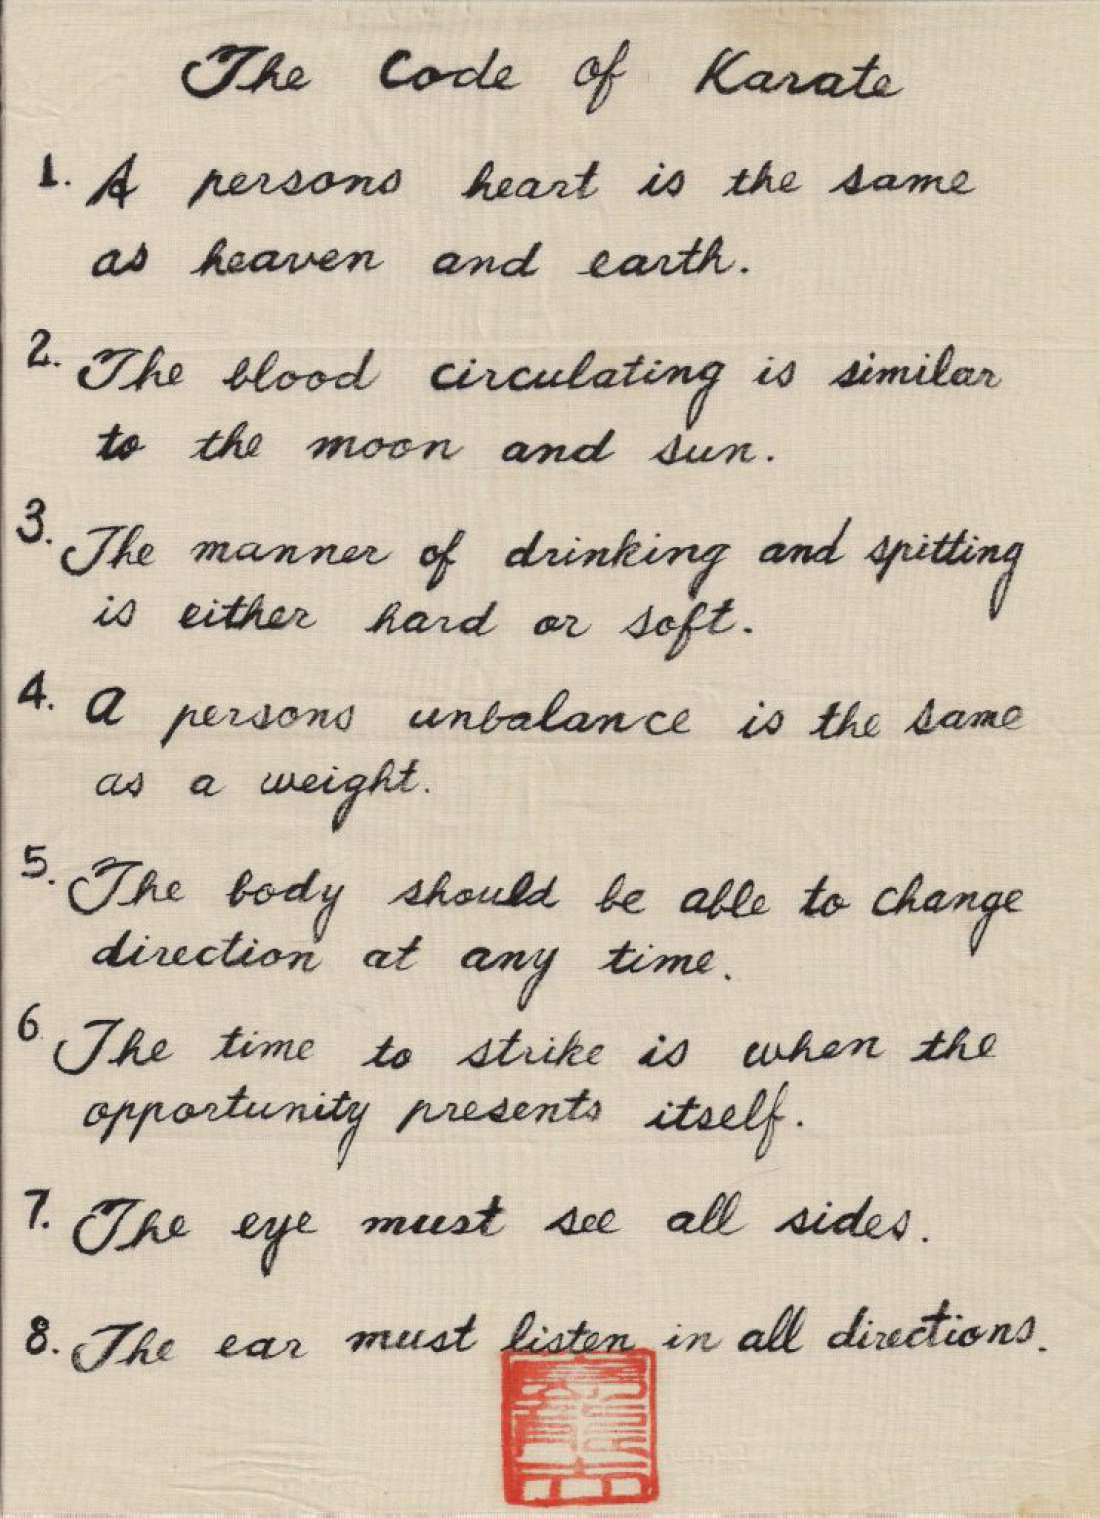 The Code of Karate
1. A persons heart is the same
as heaven and earth.
2. The blood circulating is similar
to the moon and sun.
3. The manner of drinking and spitting
is either hard or soft.
4. a persons unbalance is the same
as a weight.
5. The body should be able to change
direction at any time.
6 The time to strike is when the
opportunity presents itself.
7. The eye must see all sides.
8. The ear must listen in all directions.